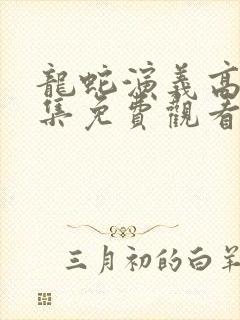 龍蛇演義高
集免費觀看
三月初的白羊